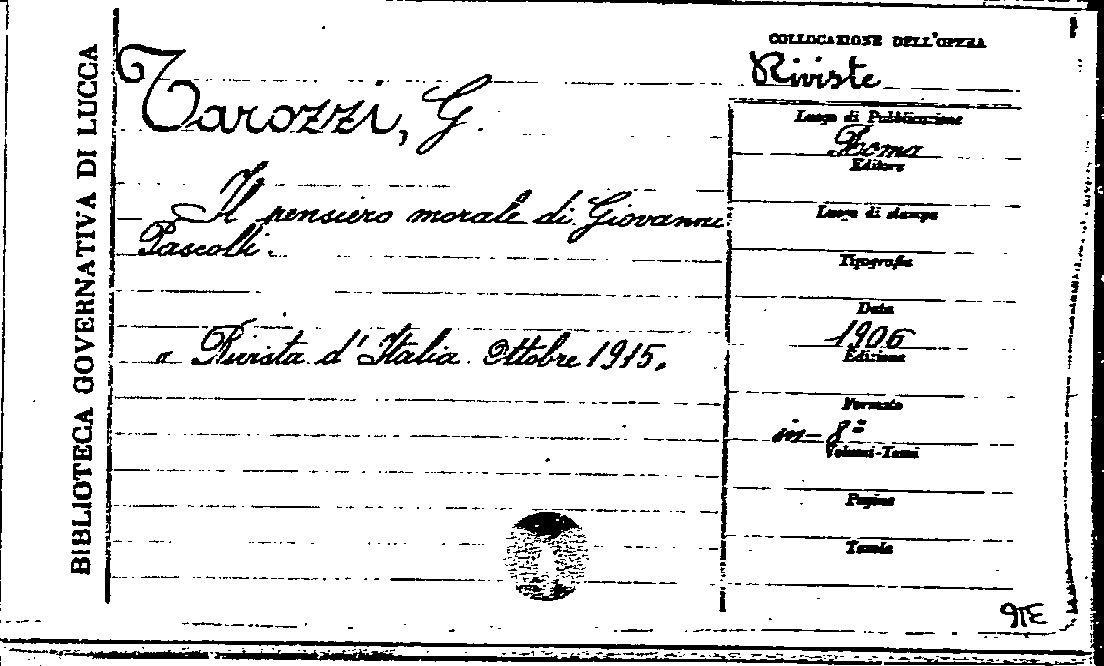 BIBLIOTECA GOVERNATIVA DI LUCCA
Tarozzi, G.
Il pensiero morale di Giovanni
Pascoli.
« Rivista d'Italia. Ottobre 1915.
COLLOCAZIONE DELL'OPERA
Riviste
Luogo di Pubblicazione
Roma
Editore
Luogo di stampa
Tipografia
Data
1906
Edizione
Formato
in-8º
Volumi-Tomi
Pagine
Tavole